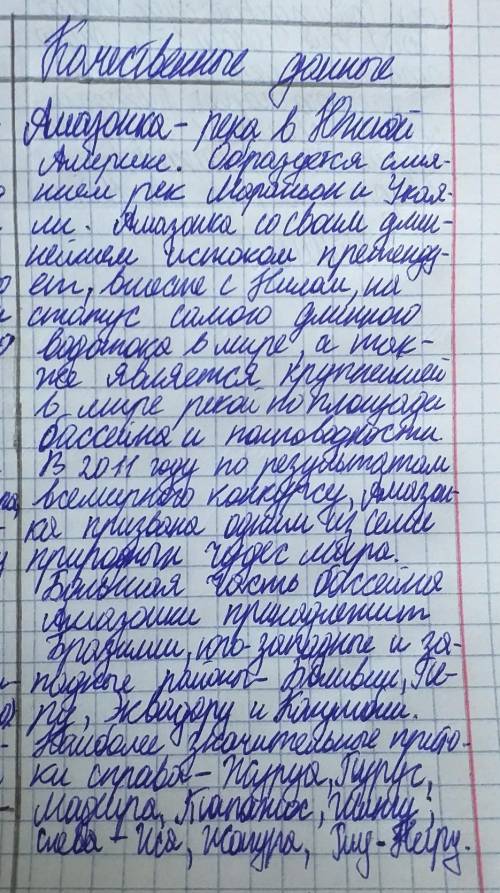 Качественные данные
Амазонка - река в Южной
Америке. Образуется слия-
нием рек Мараньон и Укая-
ли. Амазонка со своим длин-
нейшем истоком претенду-
ет, вместе с Нилом, на
статус самого длинного
водотока в мире, а так-
же является крупнейшей
в мире рекой по площади
бассейна и полноводности.
В 2011 году по результатам
всемирного конкурсу, Амазон-
ка призвана одним из семи
природных чудес мира.
Большая часть бассейна
Амазонки принадлежит
Бразилии, юго-западные и за-
падные районы - Боливии, Пе-
ру, Эквадору и Колумбии.
Наиболее значительные прито-
ки справа - Журуа, Пурус,
Мадейра, Тапажос, Шингу;
слева - Иса, Жапура, Риу-Негру.